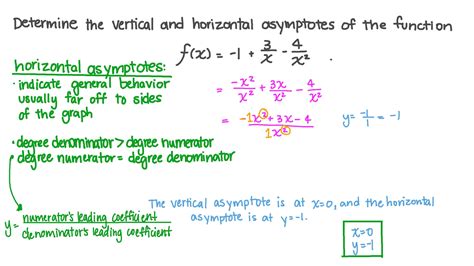 Determine the vertical and horizontal asymptotes of the function
f(x) = -1 + 3/x - 4/x² .
horizontal asymptotes:
• indicate general behavior
usually far off to sides
of the graph
= -x²/x² + 3x/x² - 4/x²
= -1x² + 3x - 4 / 1x²
y = -1/1 = -1
• degree denominator > degree numerator
• degree numerator = degree denominator
y = numerator's leading coefficient / denominator's leading coefficient
The vertical asymptote is at x=0, and the horizontal
asymptote is at y=-1.
x=0
y=-1